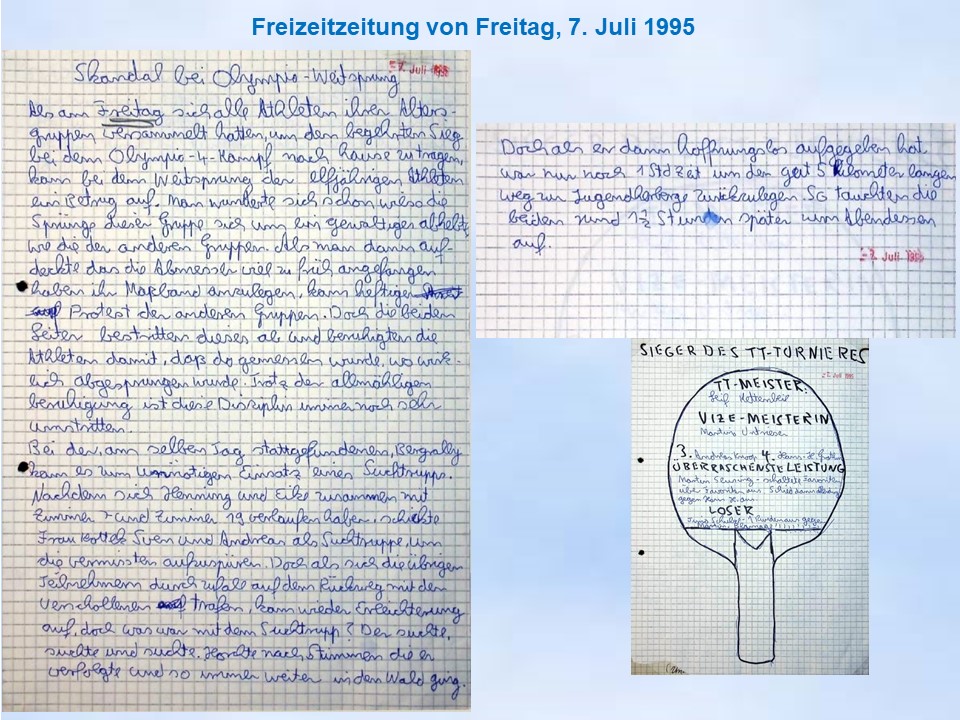 Freizeitzeitung von Freitag, 7. Juli 1995
Skandal bei Olympio-Weitsprung
7. Juli 1995
Als am Freitag sich alle Athleten ihren Alters-
gruppen versammelt hatten, um den begehrten Sieg
bei dem Olympio-4-Kampf nach hause zu tragen,
kam bei dem Weitsprung der elfjährigen Athleten
ein Betrug auf. Man wunderte sich schon wieso die
Sprünge dieser Gruppe sich um ein gewaltiges abhebt,
wie die der anderen Gruppen. Als man dann auf-
deckte das die Abmesser viel zu früh angefangen
haben ihr Maßband anzulegen, kam heftiger
Protest der anderen Gruppen. Doch die beiden
Seiten bestritten dieses ab und beruhigten die
Athleten damit, daß da gemessen wurde, wo wirk-
lich abgesprungen wurde. Trotz der allmähligen
beruhigung ist diese Disziplin immer noch sehr
umstritten.
Bei der, am selben Tag stattgefundenen, Bergrally
kam es zum unnötigen Einsatz eines Suchtrupps.
Nachdem sich Henning und Eike zusammen mit
Zimmer und Zimmer 19 verlaufen haben, schickte
Frau Sven und Andreas als Suchtruppe, um
die vermissten aufzuspüren. Doch als sich die übrigen
Teilnehmern durch zufall auf dem Rückweg mit den
verschollenen trafen, kam wieder Erleichterung
auf, doch was war mit dem Suchtrupp? Der suchte,
suchte und suchte. Horchte nach Stimmen die er
verfolgte und so immer weiter in den Wald ging.
Doch als er dann hoffnungslos aufgegeben hat
war nur noch 1 Std zat um den gut 5 kilometer langen
weg zur Jugendherberge zurückzulegen. So tauchten die
beiden rund 1½ Stunden später zum Abendessen
auf.
7. Juli 1995
SIEGER DES TT-TURNIERES
TT-MEISTER:
VIZE-MEISTERIN
3. Andreas 4. Hans
ÜBERRASCHENSTE LEISTUNG
Martin - schaltete Favoriten
über Favoriten aus. Schied dann
gegen aus.
LOSER